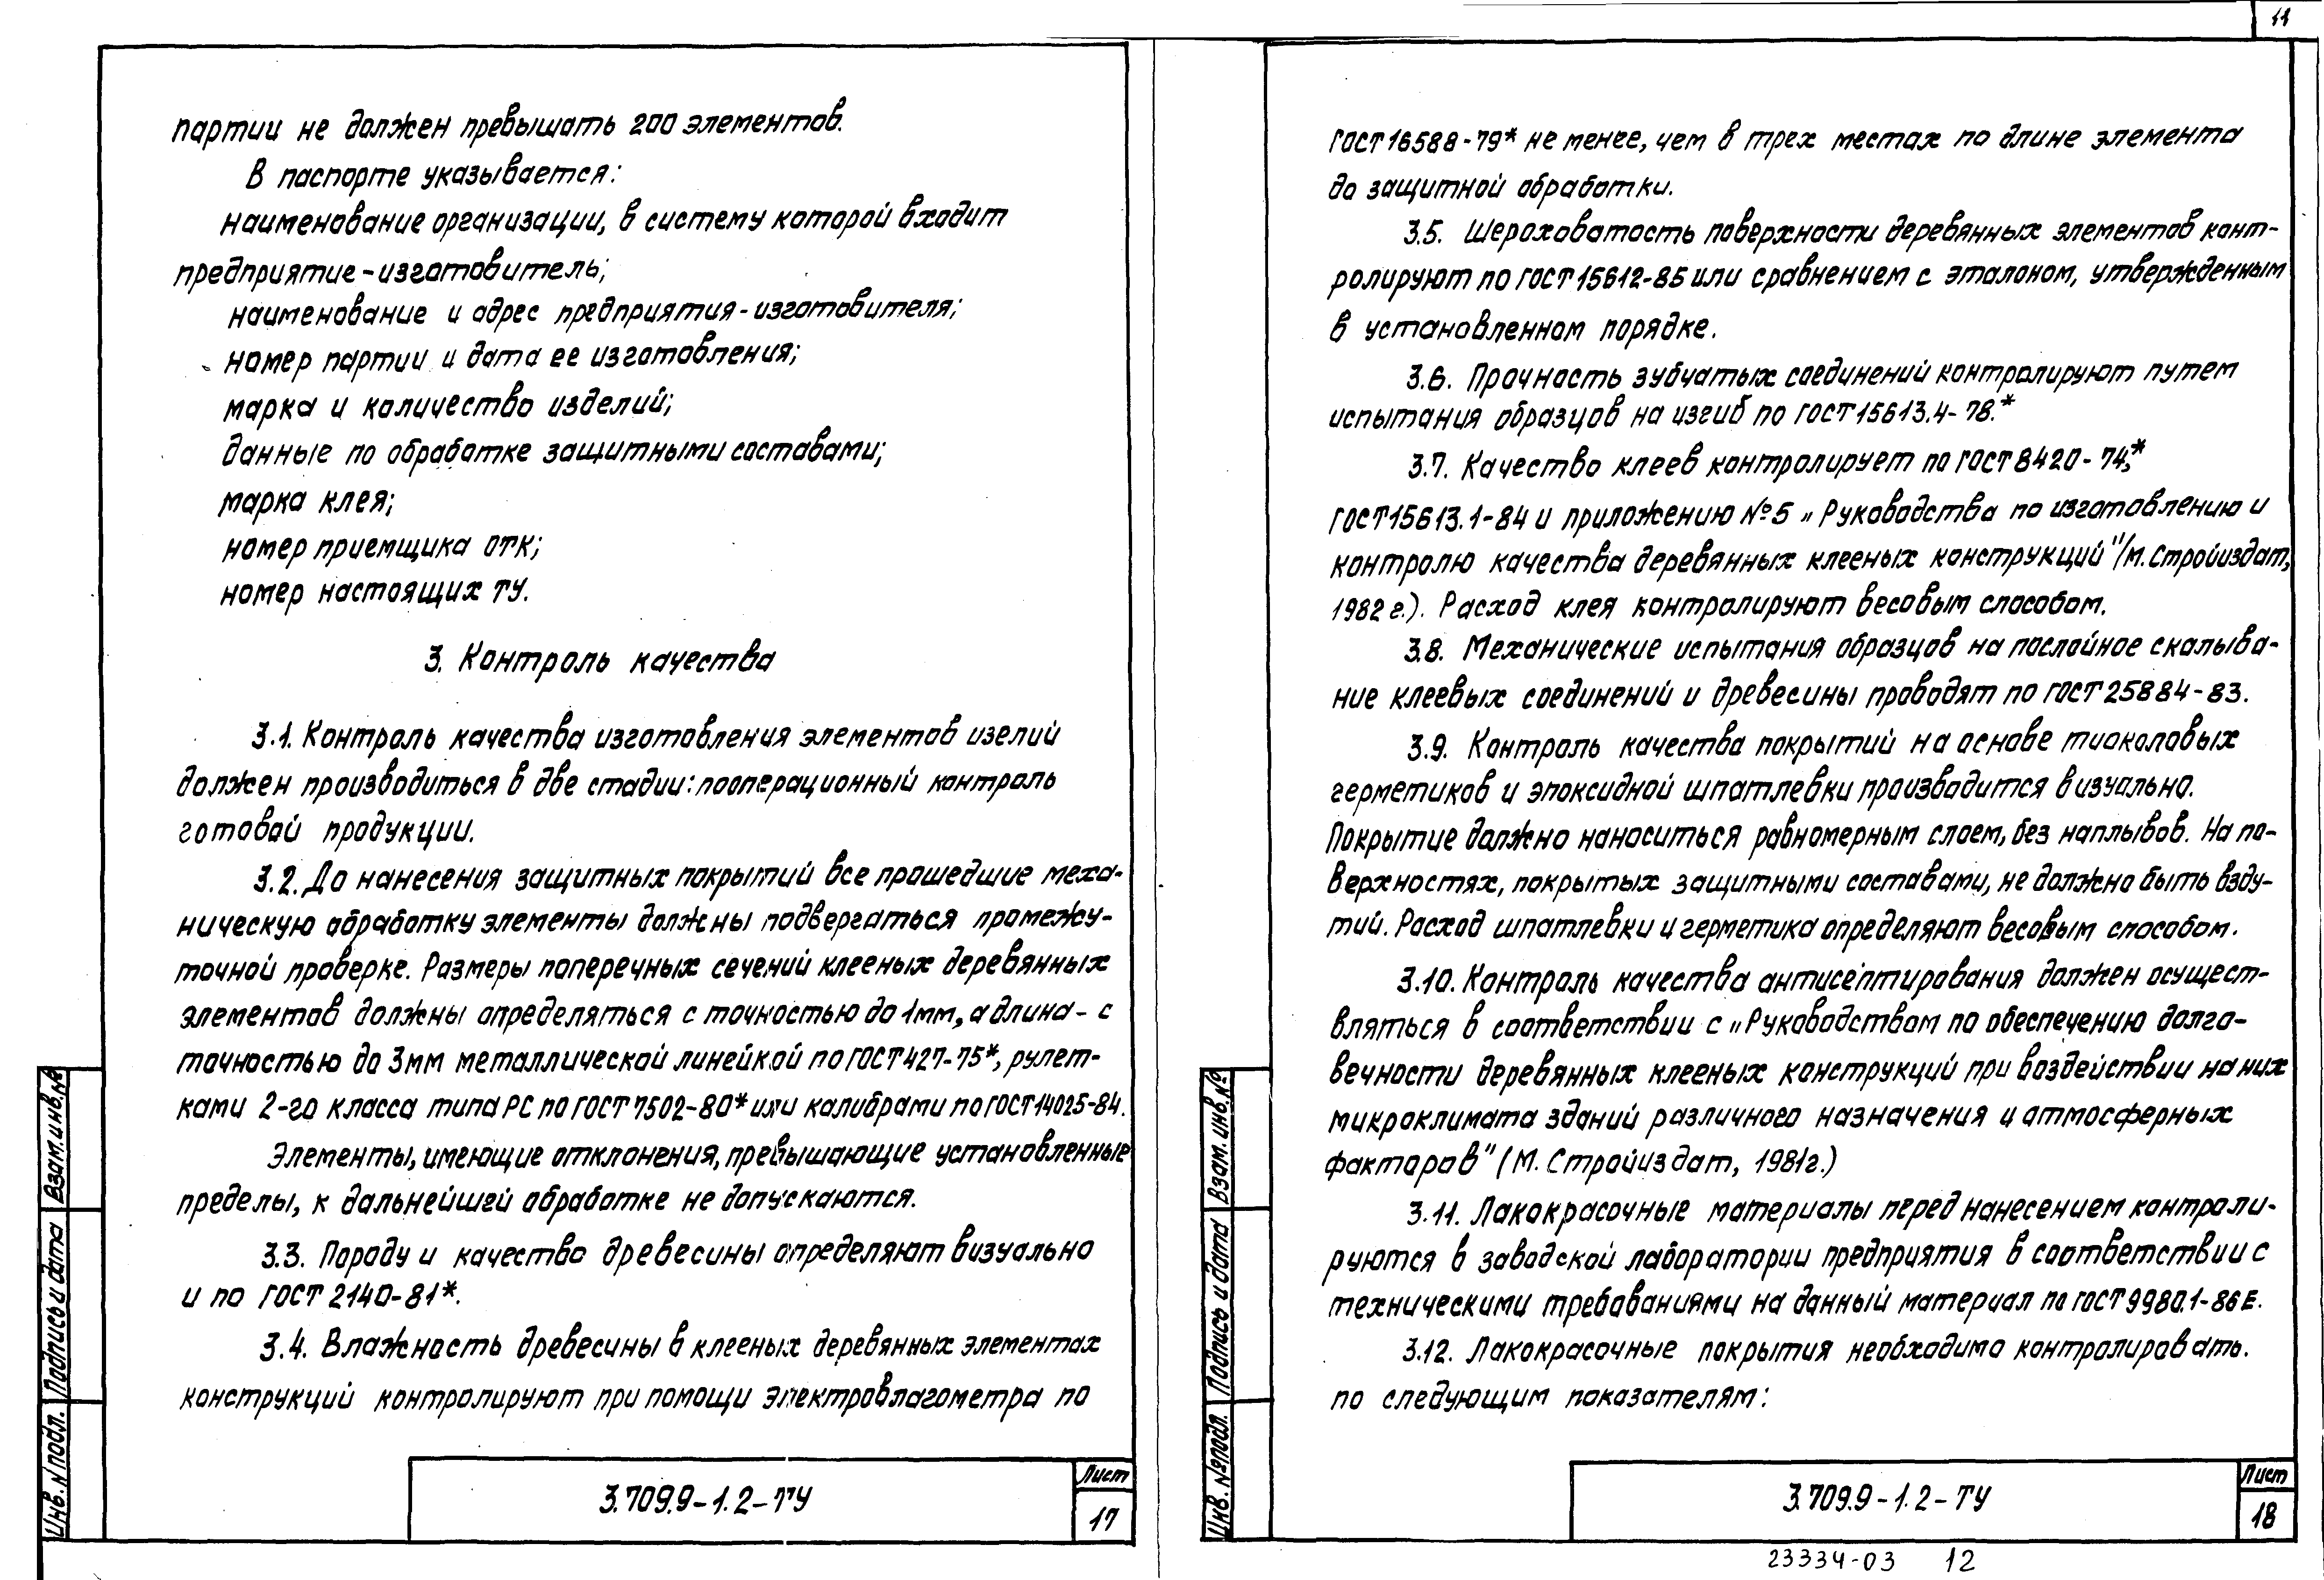 партии не должен превышать 200 элементов.
В паспорте указывается:
наименование организации, в систему которой входит
предприятие-изготовитель;
наименование и адрес предприятия-изготовителя;
номер партии и дата ее изготовления;
марка и количество изделий;
данные по обработке защитными составами;
марка клея;
номер приемщика ОТК;
номер настоящих ТУ.
3. Контроль качества
3.1. Контроль качества изготовления элементов изелий
должен производиться в две стадии: пооперационный контроль
готовой продукции.
3.2. До нанесения защитных покрытий все прошедшие меха-
ническую обработку элементы должны подвергаться промежу-
точной проверке. Размеры поперечных сечений клееных деревянных
элементов должны определяться с точностью до 1мм, а длина - с
точностью до 3мм металлической линейкой по ГОСТ 427-75*, рулет-
ками 2-го класса типа РС по ГОСТ 7502-80* или калибрами по ГОСТ 14025-84.
Элементы, имеющие отклонения, превышающие установленные
пределы, к дальнейшей обработке не допускаются.
3.3. Породу и качество древесины определяют визуально
и по ГОСТ 2140-81*.
3.4. Влажность древесины в клееных деревянных элементах
конструкций контролируют при помощи электровлагометра по
3.709.9-1.2-ТУ
Лист
17
Инв. N подл.
Подпись и дата
Взам. инв. №
11
ГОСТ 16588-79* не менее, чем в трех местах по длине элемента
до защитной обработки.
3.5. Шероховатость поверхности деревянных элементов конт-
ролируют по ГОСТ 15612-85 или сравнением с эталоном, утвержденным
в установленном порядке.
3.6. Прочность зубчатых соединений контролируют путем
испытания образцов на изгиб по ГОСТ 15613.4-78.*
3.7. Качество клеев контролирует по ГОСТ 8420-74,*
ГОСТ 15613.1-84 и приложению №5 „Руководства по изготовлению и
контролю качества деревянных клееных конструкций" /М. Стройиздат,
1982 г.). Расход клея контролируют весовым способом.
3.8. Механические испытания образцов на послойное скалыва-
ние клеевых соединений и древесины проводят по ГОСТ 25884-83.
3.9. Контроль качества покрытий на основе тиоколовых
герметиков и эпоксидной шпатлевки производится визуально.
Покрытие должно наноситься равномерным слоем, без наплывов. На по-
верхностях, покрытых защитными составами, не должно быть взду-
тий. Расход шпатлевки и герметика определяют весовым способом.
3.10. Контроль качества антисептирования должен осущест-
вляться в соответствии с „Руководством по обеспечению долго-
вечности деревянных клееных конструкций при воздействии на них
микроклимата зданий различного назначения и атмосферных
факторов" (М. Стройиздат, 1981г.)
3.11. Лакокрасочные материалы перед нанесением контроли-
руются в заводской лаборатории предприятия в соответствии с
техническими требованиями на данный материал по ГОСТ 9980.1-86Е.
3.12. Лакокрасочные покрытия необходимо контролировать.
по следующим показателям:
3.709.9-1.2-ТУ
Лист
18
Инв. № подл.
Подпись и дата
Взам. инв. №
23334-03 12